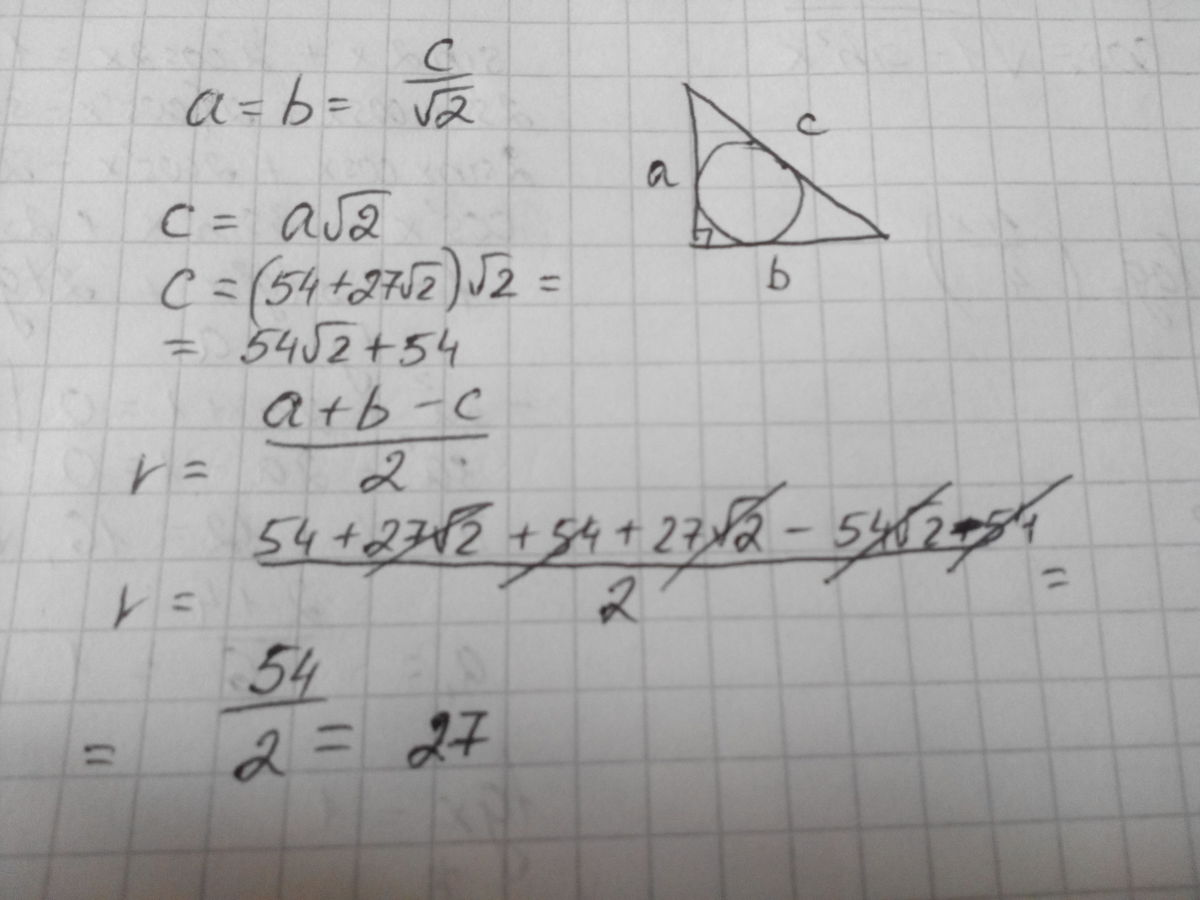 a = b = c/√2
c = a√2
c = (54+27√2)√2 =
= 54√2 + 54
r = (a + b - c)/2
r = (54 + 27√2 + 54 + 27√2 - 54√2 - 54)/2 =
= 54/2 = 27
a
c
b